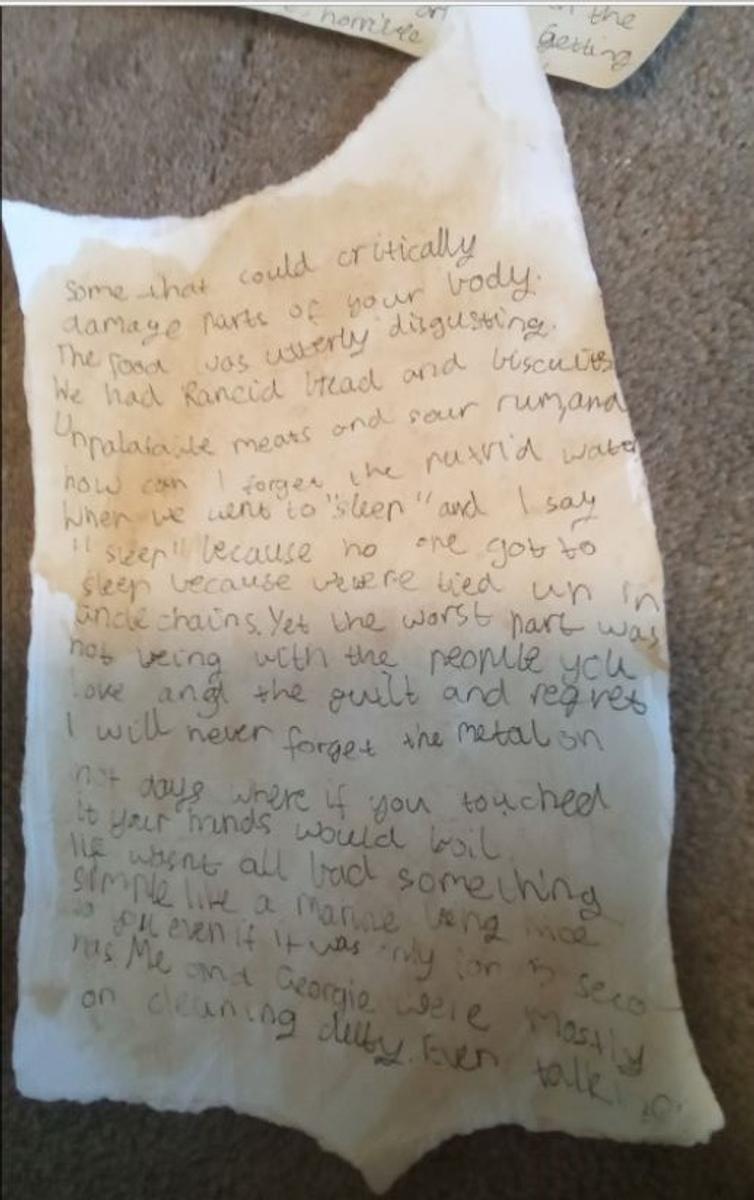 horrible on in the
Getting
some that could critically
damage parts of your body.
The food was utterly disgusting.
We had Rancid bread and biscuits
Unpalatable meats and sour rum, and
how can I forget the putrid water
When we went to "sleep" and I say
"sleep" because no one got to
sleep because were tied up in
ancle chains. Yet the worst part was
not being with the people you
love and the guilt and regret
I will never forget the metal on
hot days where if you touched
it your hands would boil
wasnt all bad something
simple like a marine being nice
to you even if it was only for 5 seco
Me and Georgie were mostly
on cleaning duty. Even talk